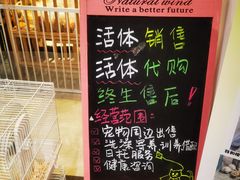 Natural wind
Write a better future
活体销售
活体代购
终生售后！
经营范围：
宠物周边出售
洗澡寄养训养
日托服务
健康咨询